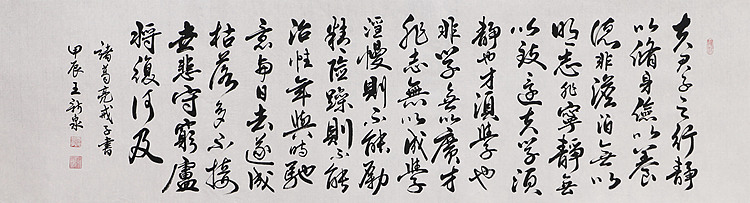 夫君子之行静
以脩身儉以養
德非澹泊無以
明志非寧静無
以致遠夫学須
静也才須學也
非学無以廣才
非志無以成學
淫慢則不能勵
精險躁則不能
治性年與時馳
意与日去遂成
枯落多不接
世悲守窮廬
将復何及
諸葛亮戒子書
甲辰王新泉